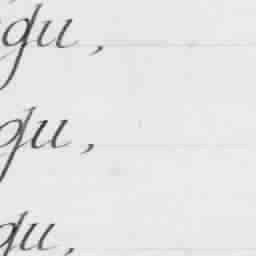 gu,
gu,
gu,